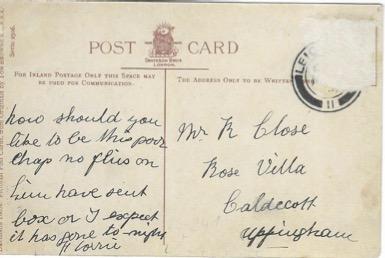 POST CARD
DAVIDSON BROS
LONDON.
FOR INLAND POSTAGE ONLY THIS SPACE MAY
BE USED FOR COMMUNICATION.
THE ADDRESS ONLY TO BE WRITTEN
LEIC
11
how should you
like to be this poor
Chap no flies on
have sent
box or I expect
it has gone to night
Mr K Close
Rose Villa
Caldecott
Uppingham